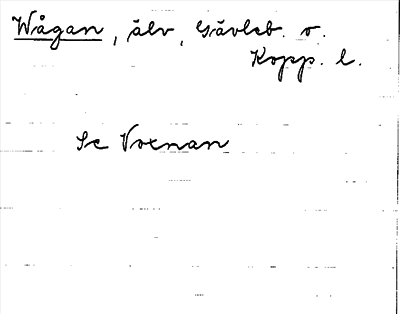 Wågan, älv, Gävleb. o.
Kopp. l.
Se Voxnan